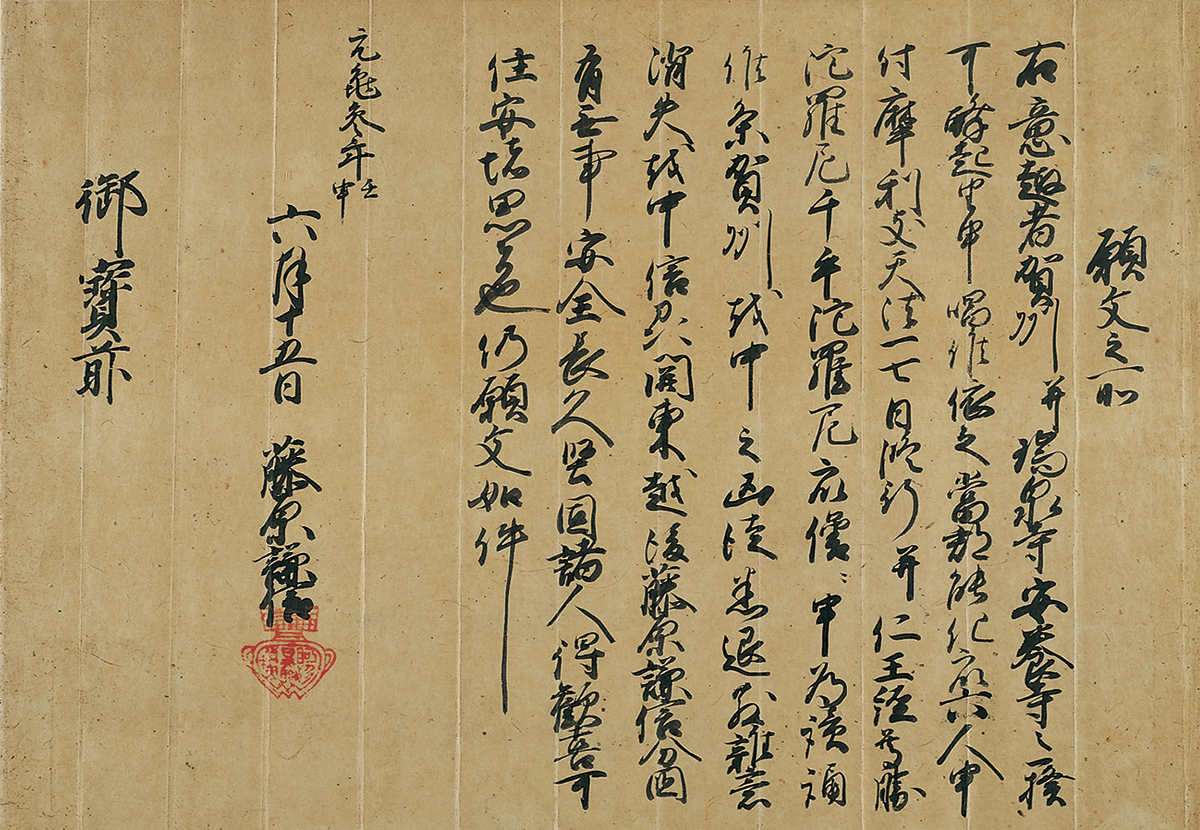 願文之
右意趣者賀州并瑞泉寺安養寺之一揆
可酵起由申唱候依之當郡能化衆六人申
付摩利支天法一七日修行并仁王経尊勝
陀羅尼千手陀羅尼衆僧ニ申為読誦
候条賀州越中之凶徒悉退散雑意
消失越中信州関東越後藤原謙信分国
有無事安全長久堅固諸人得歓喜可
住安堵思者也仍願文如件
元亀参年壬申
六月十五日 藤原謙信
御寶前